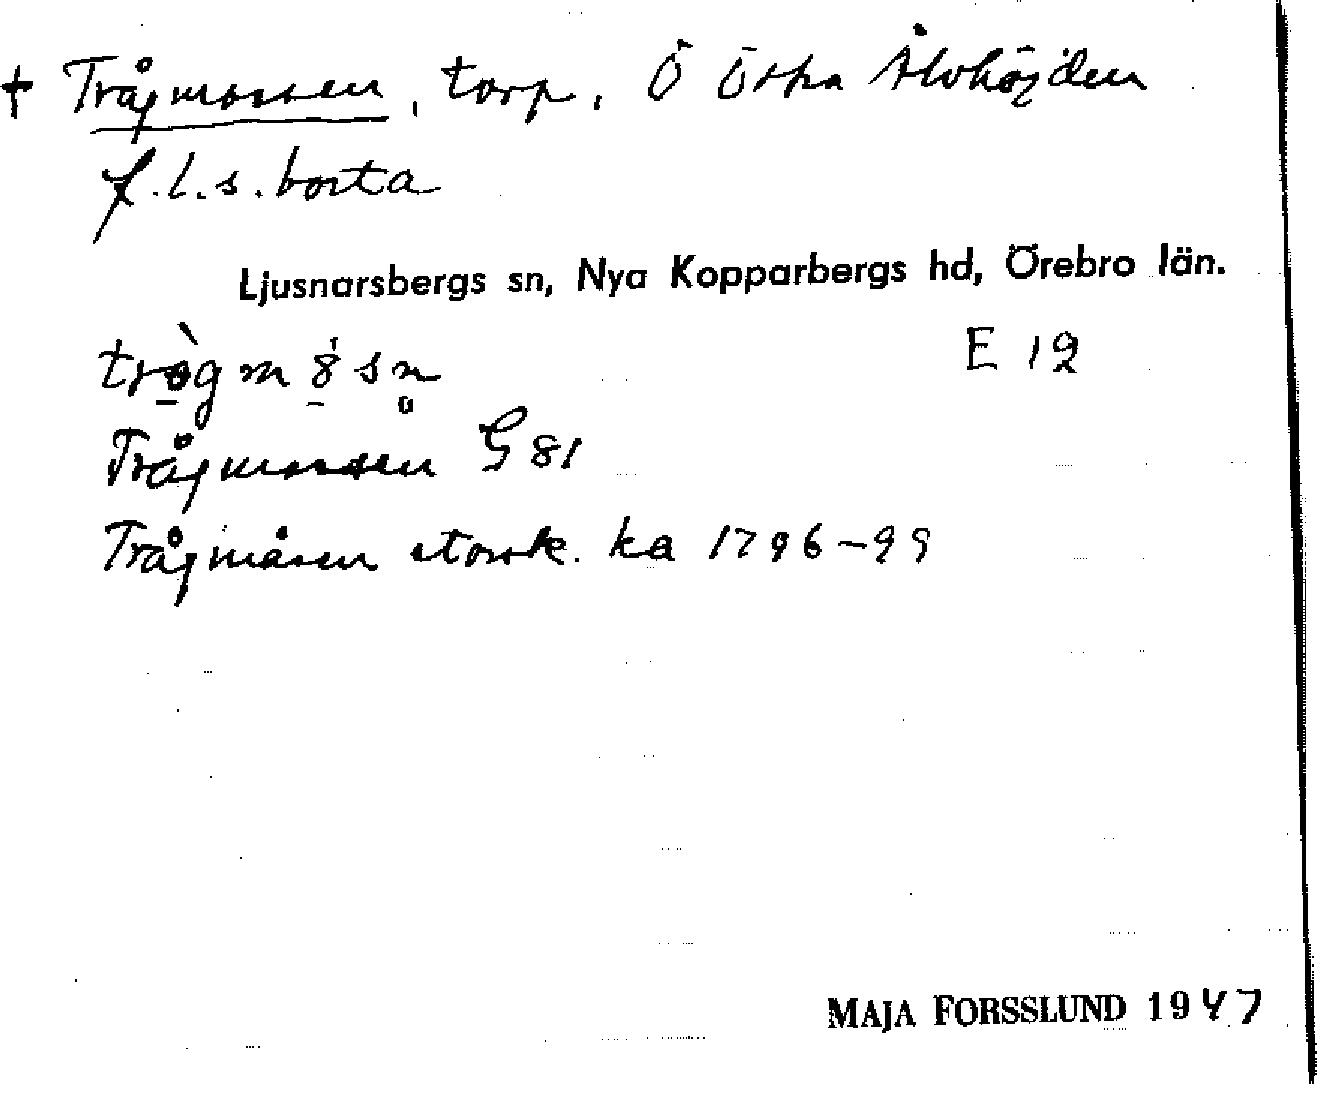 † Trågmossen, torp, Ö Östra Älvhöjden
f.l.s. borta
Ljusnarsbergs sn, Nya Kopparbergs hd, Örebro län.
E 12
Trågmossen G 81
Trågmåsen storsk. ka 1796–99
MAJA FORSSLUND 1947